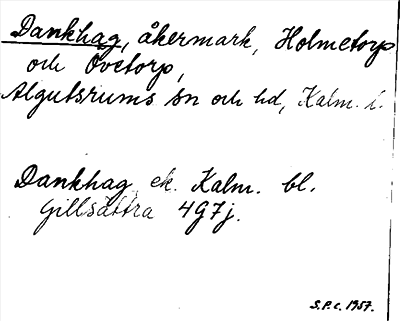 Dankhag, åkermark, Holmetorp
och Övetorp,
Algutsrums sn och hd, Kalm. l.
Dankhag ek. Kalm. bl.
Gillsättra 4G7j.
S.P.C. 1957.